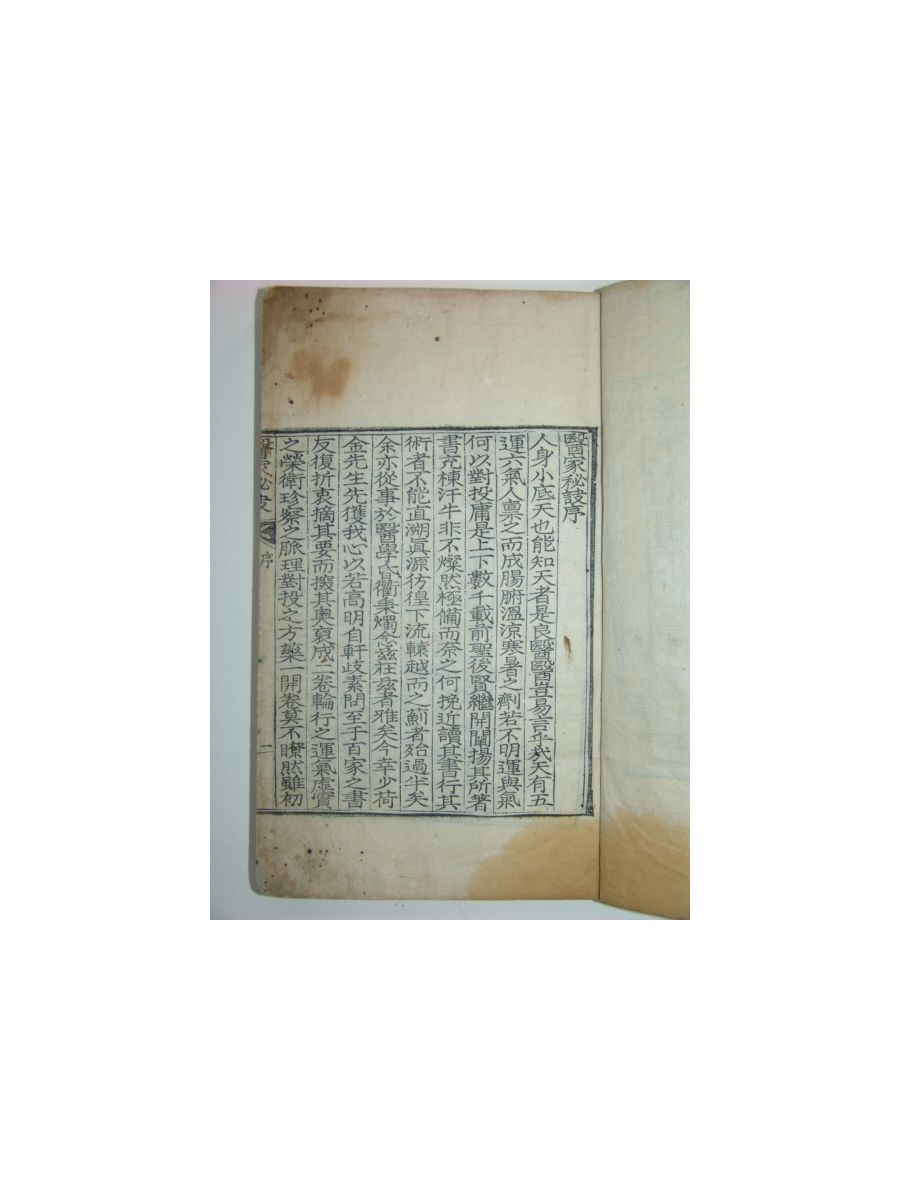 醫家秘訣序
人身小底天也能知天者是良醫醫豈易言乎哉天有五
運六氣人禀之而成腸腑溫涼寒暑之劑若不明運與氣
何以對投庸是上下數千載前聖後賢繼開闡揚其所著
書充棟汗牛非不燦然極備而奈之何挽近讀其書行其
術者不能直溯眞源彷徨下流轅越而之薊者殆過半矣
余亦從事於醫學氏衢秉燭念玆在玆者雅矣今幸少荷
金先生先獲我心以若高明自軒歧素問至于百家之書
友復折衷摘其要而撥其奧裒成二卷輪行之運氣虛實
之榮衛珍察之脈理對投之方藥一開卷莫不瞭然雖初
醫家秘訣 序 一